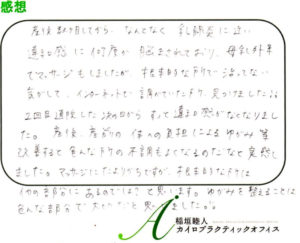 感想
産後数ヶ月してから、なんとなく乳腺炎に近い
違和感に何度か悩まされており、母乳外来
でマッサージもしましたが、根本的なケアで治ってない
気がして、インターネットで 、見つけました。
2回目通院した次の日から、すっと違和感がなくなりまし
た。産後、産前の体への負担によるゆがみ等
改善すると色んなケアの不調もよくなるのだなと実感し
ました。マッサージにたよりがちですが、根本的なケアは
他の部分にあるのでは?と思います。ゆがみを整えることは
色んな部分で大切だと思いました。
稲垣睦人
カイロプラクティックオフィス